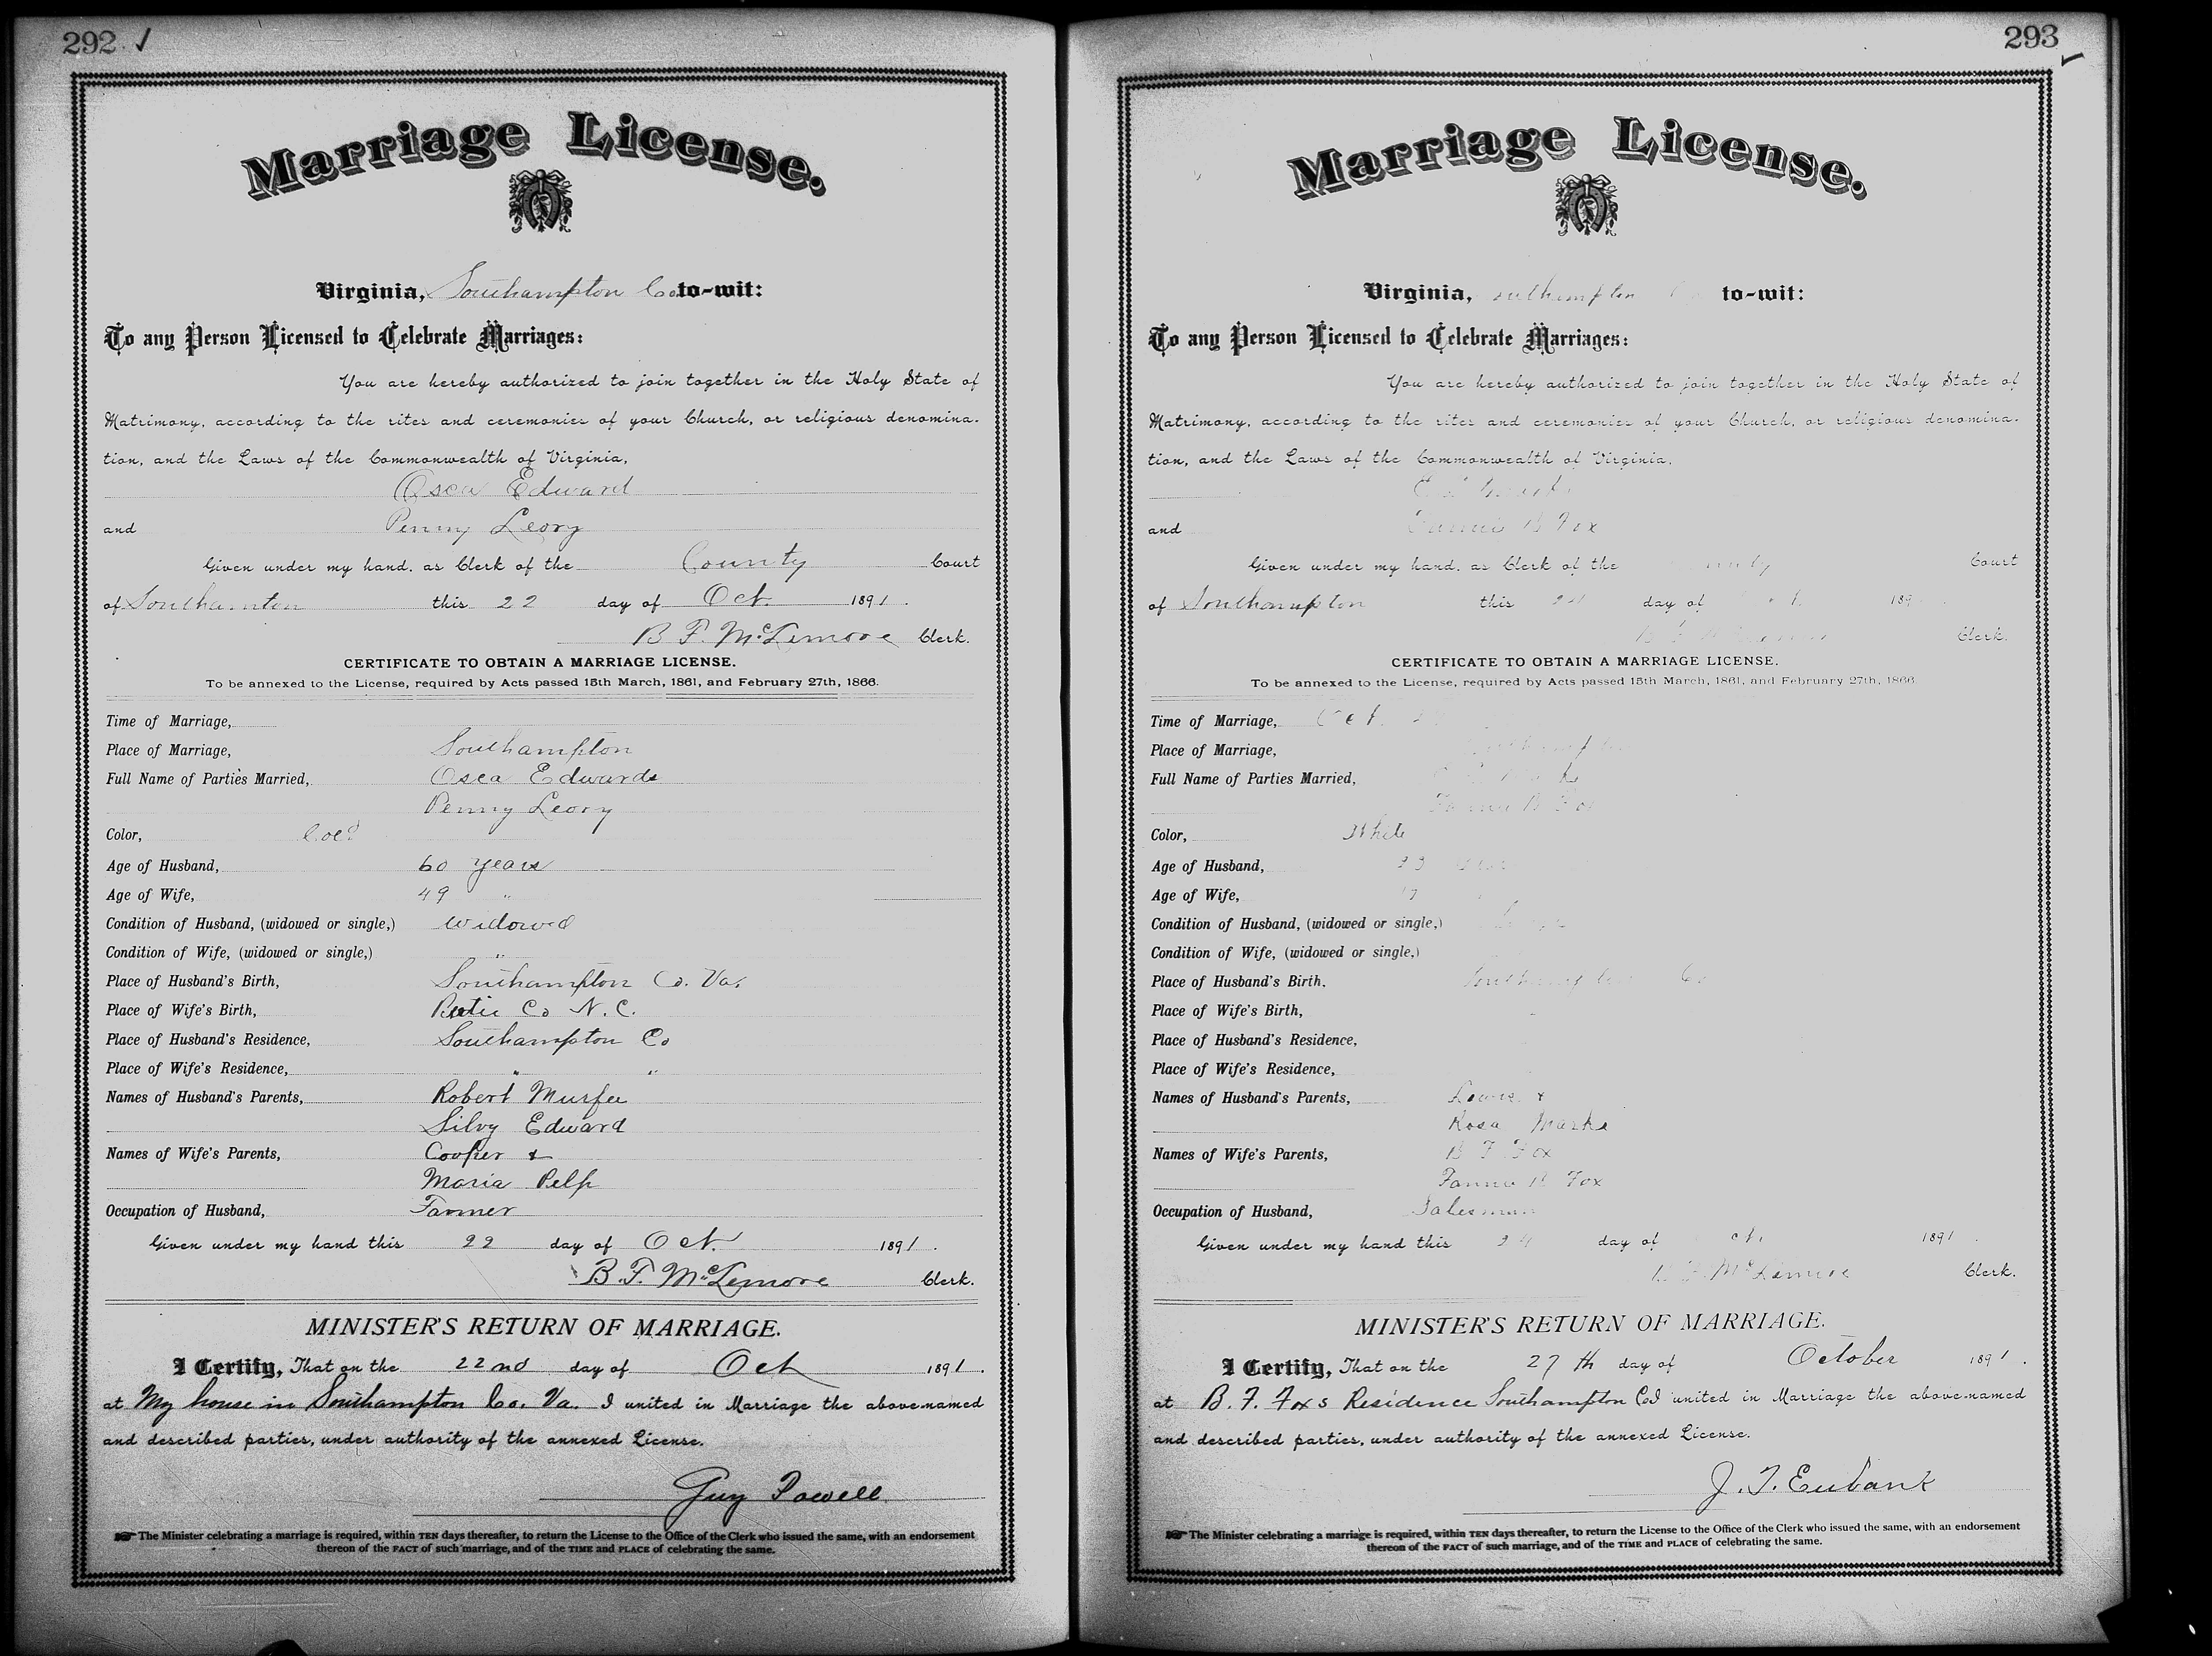 292
Marriage License.
Virginia, Southampton Co. to-wit:
To any Person Licensed to Celebrate Marriages:
You are hereby authorized to join together in the Holy State of
Matrimony, according to the rites and ceremonies of your Church, or religious denomina-
tion, and the Laws of the Commonwealth of Virginia,
Osca Edward
and Penny Leory
Given under my hand, as Clerk of the County Court
of Southamton this 22 day of Oct. 1891.
B. F. McLemore Clerk.
CERTIFICATE TO OBTAIN A MARRIAGE LICENSE.
To be annexed to the License, required by Acts passed 15th March, 1861, and February 27th, 1866.
Time of Marriage,
Place of Marriage, Southampton
Full Name of Parties Married, Osca Edwards
Penny Leory
Color, Cold
Age of Husband, 60 years
Age of Wife, 49 "
Condition of Husband, (widowed or single,) Widowed
Condition of Wife, (widowed or single,) "
Place of Husband's Birth, Southampton Co. Va.
Place of Wife's Birth, Bertie Co N. C.
Place of Husband's Residence, Southampton Co
Place of Wife's Residence, " "
Names of Husband's Parents, Robert Murfee
Silvy Edward
Names of Wife's Parents, Cooper &
Maria Pelp
Occupation of Husband, Farmer
Given under my hand this 22 day of Oct. 1891.
B. F. McLemore Clerk.
MINISTER'S RETURN OF MARRIAGE.
I Certify, That on the 22nd day of Oct 1891.
at My house in Southampton Co. Va. I united in Marriage the above-named
and described parties, under authority of the annexed License.
Guy Powell
The Minister celebrating a marriage is required, within TEN days thereafter, to return the License to the Office of the Clerk who issued the same, with an endorsement
thereon of the FACT of such marriage, and of the TIME and PLACE of celebrating the same.
293
Marriage License.
Virginia, Southampton to-wit:
To any Person Licensed to Celebrate Marriages:
You are hereby authorized to join together in the Holy State of
Matrimony, according to the rites and ceremonies of your Church, or religious denomina-
tion, and the Laws of the Commonwealth of Virginia,
and Fannie B Fox
Given under my hand, as Clerk of the County Court
of Southampton this 24 day of Oct. 189
B F McLemore Clerk.
CERTIFICATE TO OBTAIN A MARRIAGE LICENSE.
To be annexed to the License, required by Acts passed 15th March, 1861, and February 27th, 1866
Time of Marriage, Oct.
Place of Marriage, Southampton
Full Name of Parties Married,
Fannie B Fox
Color, White
Age of Husband, 23 years
Age of Wife,
Condition of Husband, (widowed or single,)
Condition of Wife, (widowed or single,)
Place of Husband's Birth, Southampton Co
Place of Wife's Birth,
Place of Husband's Residence,
Place of Wife's Residence,
Names of Husband's Parents, &
Rosa Marks
Names of Wife's Parents, B F Fox
Fannie B Fox
Occupation of Husband, Salesman
Given under my hand this 24 day of Oct. 1891.
B F McLemore Clerk.
MINISTER'S RETURN OF MARRIAGE.
I Certify, That on the 27th day of October 1891.
at B. F. Foxs Residence Southampton Co I united in Marriage the above-named
and described parties, under authority of the annexed License.
J. T. Eubank
The Minister celebrating a marriage is required, within TEN days thereafter, to return the License to the Office of the Clerk who issued the same, with an endorsement
thereon of the FACT of such marriage, and of the TIME and PLACE of celebrating the same.